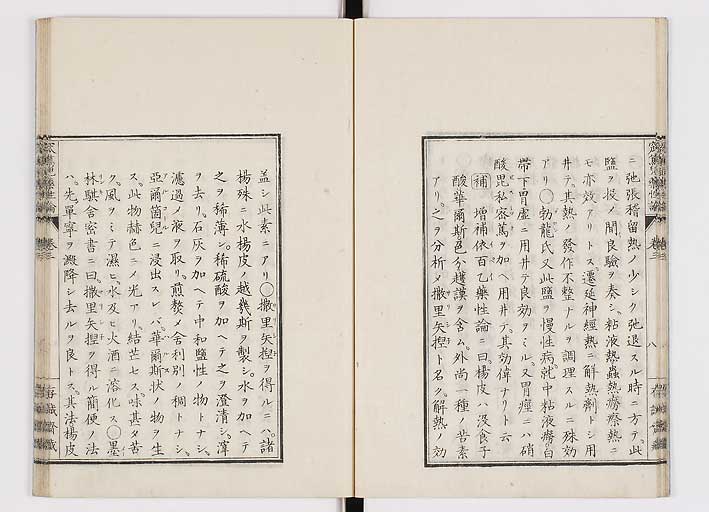 ニ弛張稽留熱ノ少シク弛退スル時ニ方テ。此
鹽ヲ投ノ間良驗ヲ奏シ。粘液熱蟲熱癆瘵熱ニ
モ亦效アリトス。遷延神經熱ニ解熱劑トシ用
井テ。其熱ノ發作不整ナルヲ調理スルニ殊効
アリ○勃龍氏又此鹽ヲ慢性病就中粘液癆白
帶下胃虛ニ用井テ良効ヲミル。又胃痙ニハ硝
酸毘私容篤ヲ加ヘ用井テ。其効偉ナリト云
補 増補依百乙藥性論ニ曰楊皮ハ沒食子
酸華爾斯色分越幾謨ヲ含ム。外尚一種ノ苦素
アリ。之ヲ分析メ撒里矢揑ト名ク。解熱ノ効
八
蓋シ此素ニアリ○撒里矢揑ヲ得ルニハ。諸
楊殊ニ水楊皮ノ越幾斯ヲ製シ。水ヲ加ヘテ
之ヲ稀薄シ。稀硫酸ヲ加ヘテ之ヲ澄清シ。滓
ヲ去リ。石灰ヲ加ヘテ中和鹽性ノ物トナシ。
濾過ノ液ヲ取リ。煎熬メ舍利別ノ稠トナシ。
亞爾箇兒ニ浸出スレバ。華爾斯狀ノ物ヲ生
ス。此物赫色ニメ光アリ。結芒セス。味甚タ苦
ク。風ヲミテ濕ヒ。水及ヒ火酒ニ溶化ス○墨
林騏舍密書ニ曰。撒里矢揑ヲ得ル簡便ノ法
ハ。先單寧ヲ澱降シ去ルヲ良トス。其法楊皮
卷三